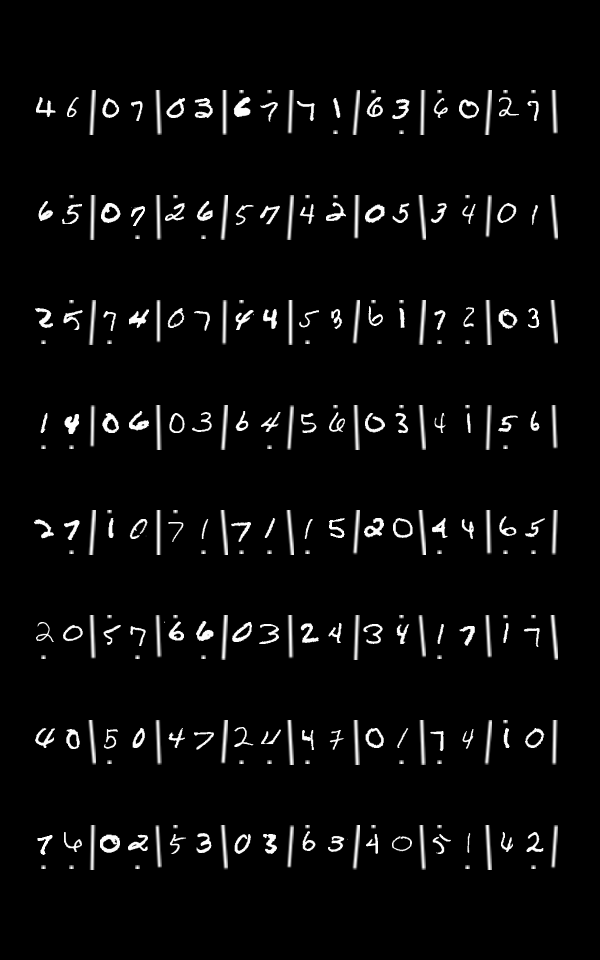 4 6 | 0 7 | 0 3 | 6̇ 7̇ | 7 1̣ | 6̇ 3̣ | 6̇ 0 | 2̇ 7̇ |
6 5̇ | 0 7̣ | 2̇ 6̣ | 5 7 | 4̇ 2̇ | 0 5 | 3 4̇ | 0 1 |
2̣ 5̇ | 7̣ 4 | 0 7 | 4̇ 4 | 5̣ 3 | 6̇ 1̇ | 7̣ 2̣ | 0 3 |
1̣ 4̣ | 0 6 | 0 3 | 6 4̣ | 5 6̇ | 0 3̇ | 4 1̇ | 5̣ 6 |
2 7̣ | 1̇ 0 | 7̇ 1̣ | 7̣ 1̣ | 1̣ 5 | 2 0 | 4̣ 4 | 6̣ 5̣ |
2̣ 0 | 5̇ 7̣ | 6̇ 6̣ | 0 3 | 2 4 | 3 4̇ | 1̣ 7 | 1̇ 7̇ |
4 0 | 5̣ 0 | 4 7 | 2̣ 4̣ | 4̣ 7 | 0 1̣ | 7̣ 4 | 1̇ 0 |
7̣ 6̣ | 0 2̣ | 5̇ 3 | 0 3 | 6̇ 3 | 4̇ 0 | 5̇ 1̣ | 4 2̣ |